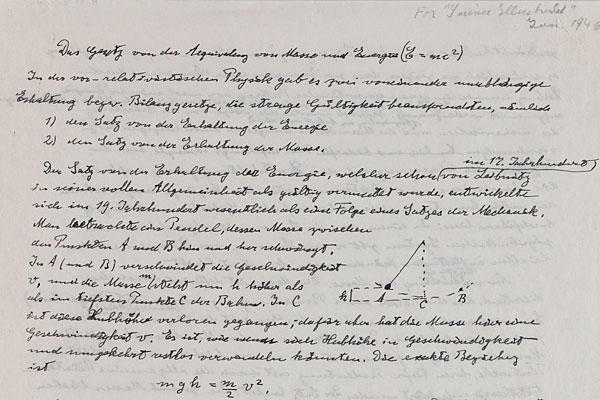 For "Science Illustrated"
Jan. 1946
Das Gesetz von der Aequivalenz von Masse und Energie (E = mc²)
In der vor-relativistischen Physik gab es zwei voneinander unabhängige
Erhaltungs bezw. Bilanzgesetze, die strenge Gültigkeit beanspruchten, nämlich
1) den Satz von der Erhaltung der Energie
2) den Satz von der Erhaltung der Masse.
im 17. Jahrhundert
Der Satz von der Erhaltung der Energie, welcher schon von Leibnitz
in seiner vollen Allgemeinheit als gültig vermutet wurde, entwickelte
sich im 19. Jahrhundert wesentlich als eine Folge eines Satzes der Mechanik.
Man betrachte ein Pendel, dessen Masse zwischen
den Punkten A und B hin und her schwingt.
In A (und B) verschwindet die Geschwindigkeit
v, und die Masse m steht um h höher als
h A C B
als im tiefsten Punkte C der Bahn. In C
ist diese Hubhöhe verloren gegangen; dafür aber hat die Masse hier eine
Geschwindigkeit v. Es ist, wie wenn sich Hubhöhe in Geschwindigkeit
und umgekehrt restlos verwandeln könnten. Die exakte Beziehung
ist
mgh = m/2 v²,